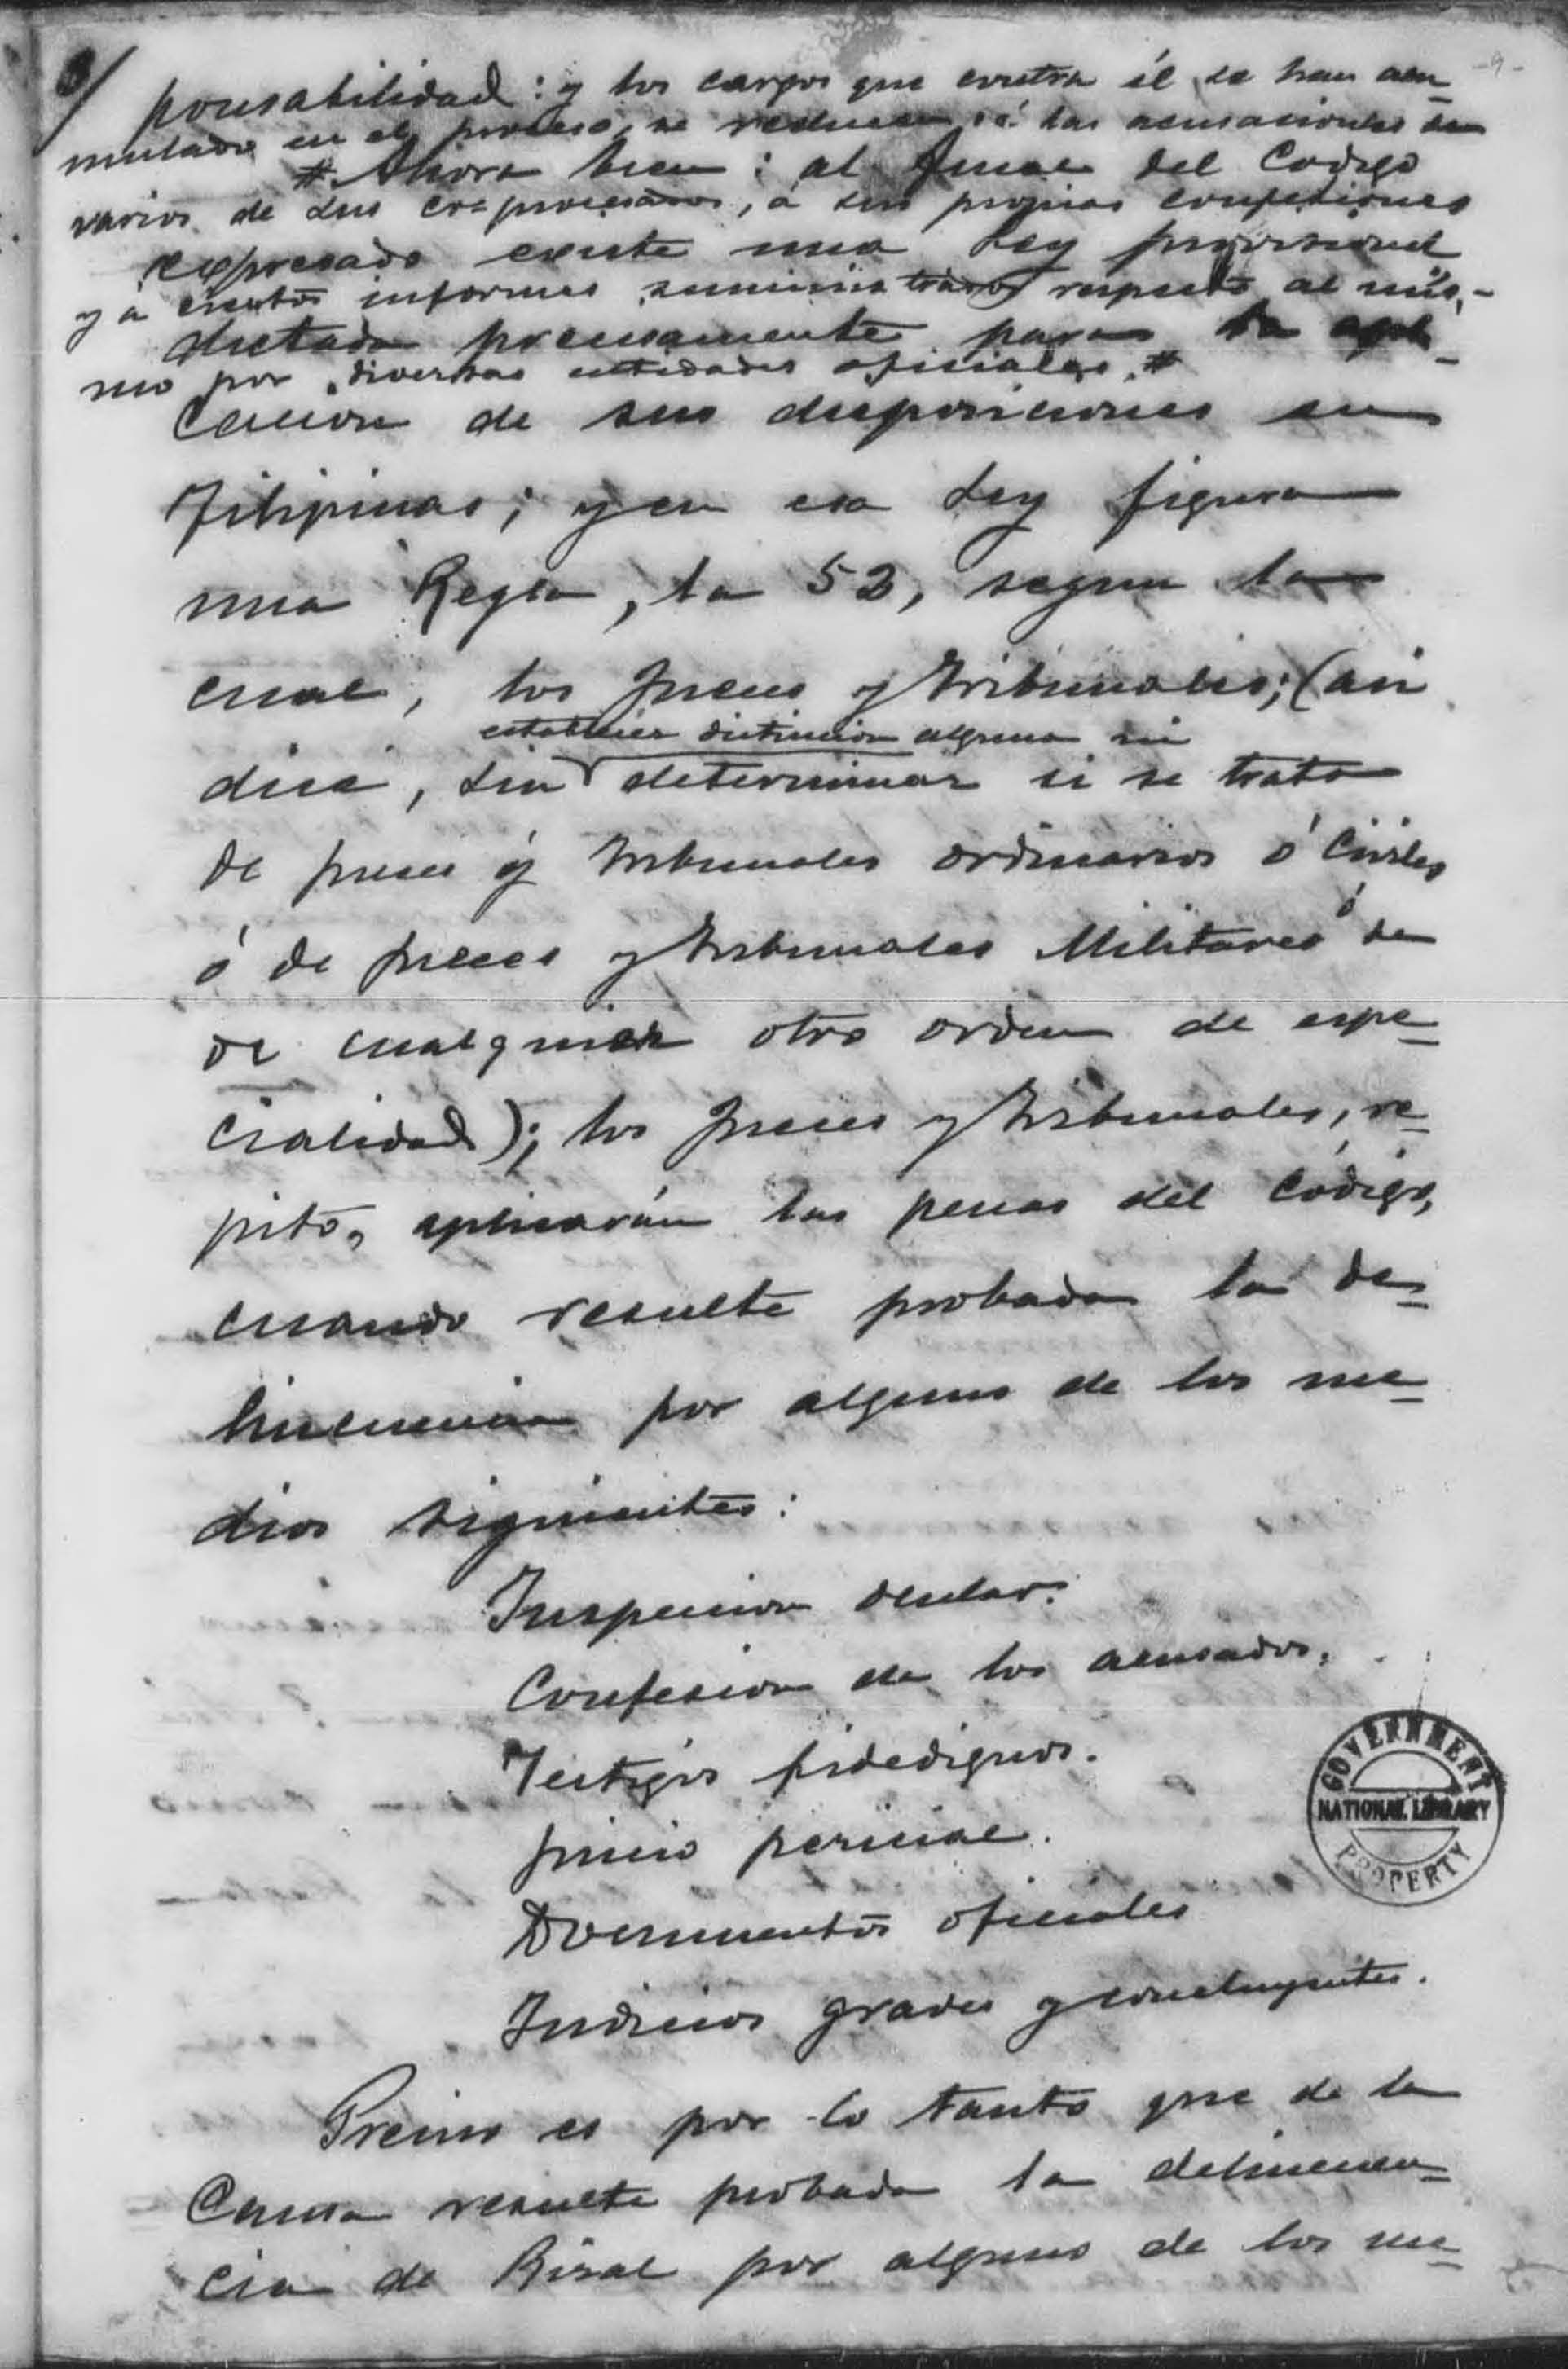 -9-
ponsabilidad: y los cargos que contra él se han acu-
mulado en el proceso, se reducen á las acusaciones de
# Ahora bien: al final del Codigo
varios de sus co-procesados, á sus propias confesiones
expresado existe una Ley provisional
y á ciertos informes suministrados respecto al mis-
dictada precisamente para la apli-
mo por diversas entidades oficiales. #
cacion de sus disposiciones en
Filipinas; y en esa Ley figura
una Regla, la 52, segun la
cual, los Jueces y tribunales; (asi
establecer distincion alguna ni
dice, sin determinar si se trata
de jueces y tribunales ordinarios ó civiles
ó de jueces y tribunales Militares ó de
de cualquier otro orden de espe-
cialidad); los Jueces y tribunales, re-
pito, aplicarán las penas del código,
cuando resulte probada la de-
lincuencia por alguno de los me-
dios siguientes:
Inspeccion ocular.
Confesion de los acusados.
Testigos fidedignos.
Juicio pericial.
Documentos oficiales
Indicios graves y concluyentes.
Preciso es por lo tanto que de la
Causa resulte probada la delincuen-
cia de Rizal por alguno de los me-
GOVERNMENT
NATIONAL LIBRARY
PROPERTY